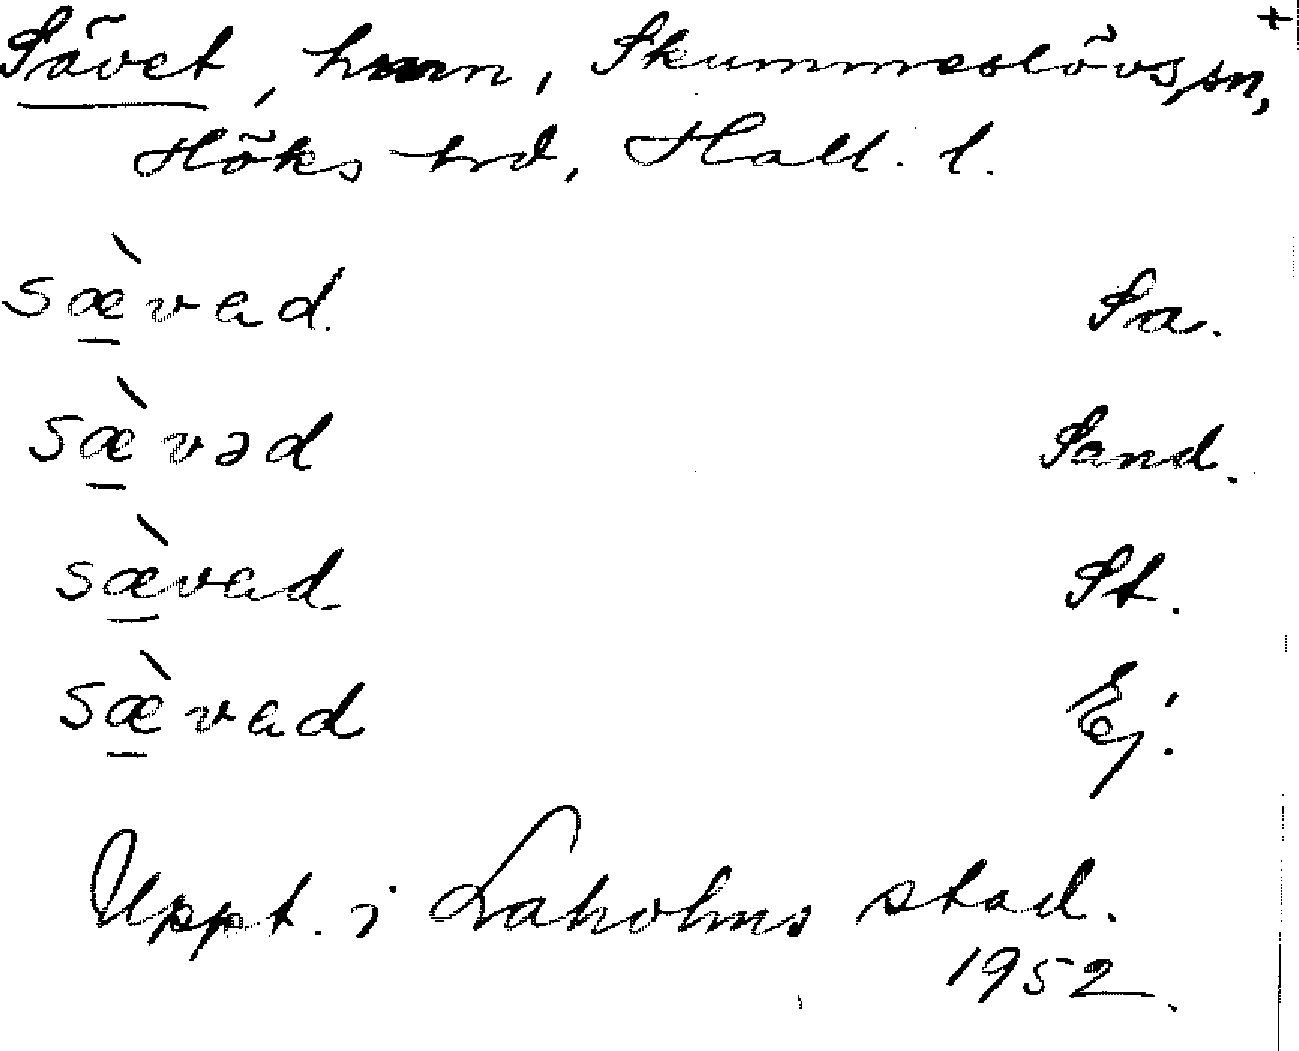 Sävet, hmn, Skummeslövs sn, +
Höks hd, Hall. l.
sæ̀vad. Sa.
sæ̀vəd Sand.
sæ̀vad St.
sæ̀vad Ej.
Uppt. i Laholms stad.
1952.